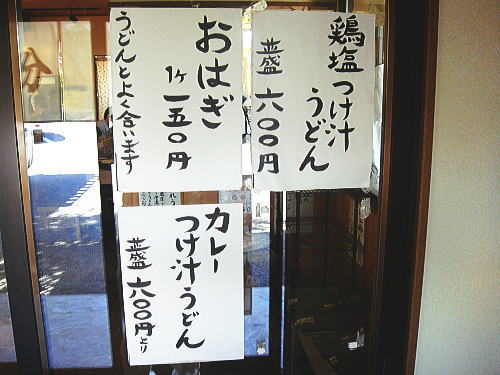 鶏塩つけ汁
うどん
並盛 六〇〇円
おはぎ
1ケ 一五〇円
うどんとよく合います
カレー
つけ汁うどん
並盛 六〇〇円より